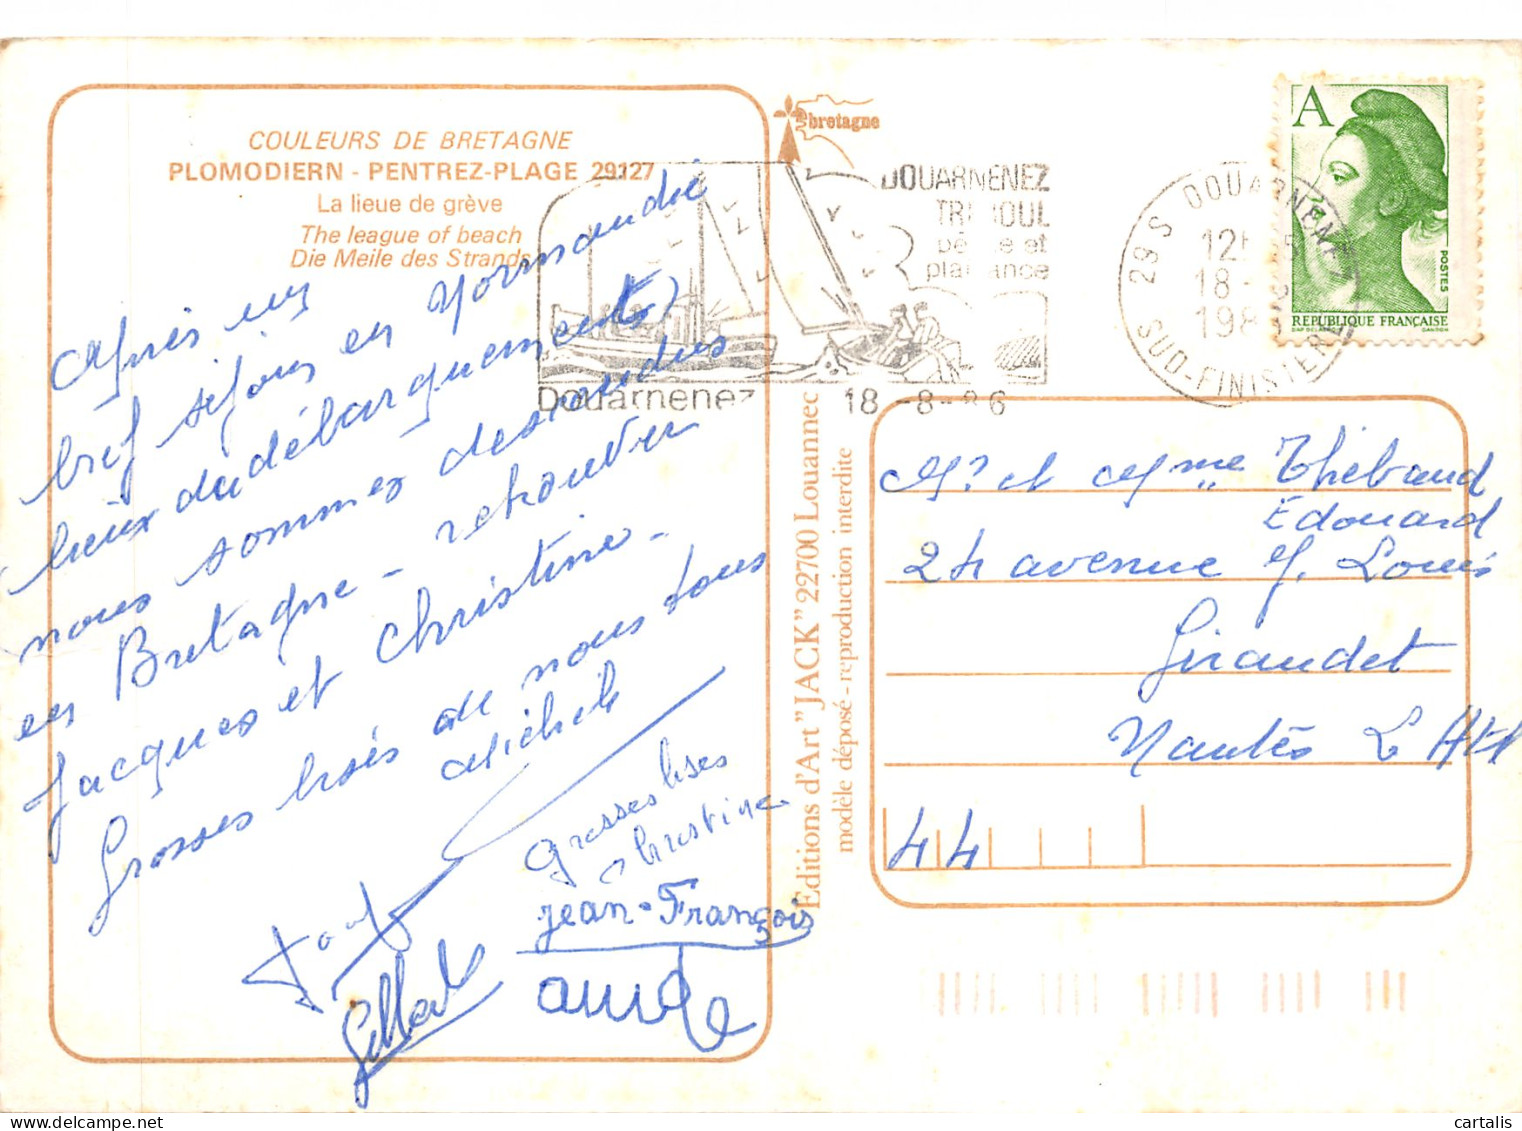 COULEURS DE BRETAGNE
PLOMODIERN - PENTREZ-PLAGE 29127
La lieue de grève
The league of beach
Die Meile des Strands
Après un
bref séjour en Normandie
lieux du débarquements)
nous sommes descendus
en Bretagne - retrouver
Jacques et Christine -
Grosses bises de nous tous
Michele
grosses bises
Christine
Jean-François
Gilbert
bretagne
DOUARNENEZ
TREBOUL
pêche et
plaisance
Douarnenez
18 -8-86
29 S DOUARNENEZ
SUD-FINISTERE
A
POSTES
REPUBLIQUE FRANÇAISE
Editions d'Art "JACK" 22700 Louannec
modèle déposé - reproduction interdite
Mr et Mme Thébaud
Edouard
24 avenue J. Louis
Giraudet
Nantes L Atl
44
cartalis